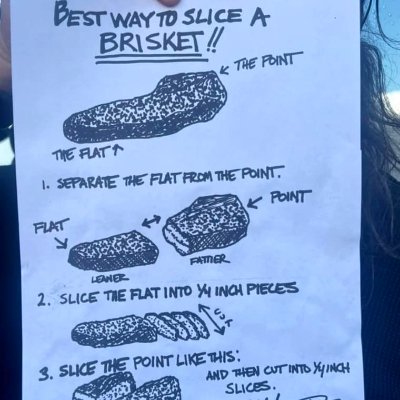 BEST WAY TO SLICE A
BRISKET!!
THE POINT
THE FLAT
1. SEPARATE THE FLAT FROM THE POINT.
POINT
FLAT
LEANER
FATTIER
2. SLICE THE FLAT INTO 1/4 INCH PIECES
CUT
3. SLICE THE POINT LIKE THIS:
AND THEN CUT INTO 1/4 INCH
SLICES.